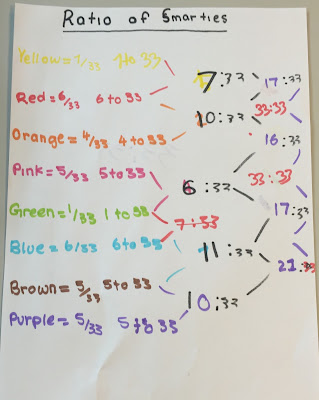 Ratio of Smarties
Yellow = 1/33 1 to 33
Red = 6/33 6 to 33
Orange = 4/33 4 to 33
Pink = 5/33 5 to 33
Green = 1/33 1 to 33
Blue = 6/33 6 to 33
Brown = 5/33 5 to 33
Purple = 5/33 5 to 33
7:33
10:33
6:33
7:33
11:33
10:33
17:33
33:33
16:33
33:33
17:33
21:33